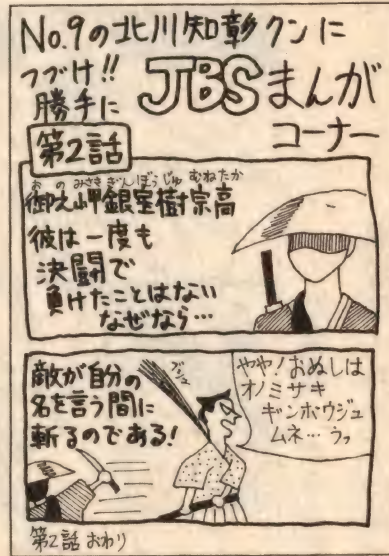 No.9の北川知彰クンに
つづけ!!
勝手に
JBSまんが
コーナー
第2話
おのみさきぎんぽうじゅむねたか
御之岬銀宝樹宗高
彼は一度も
決闘で
負けたことはない
なぜなら…
敵が自分の
名を言う間に
斬るのである!
ブシュ
やや!おぬしは
オノミサキ
ギンホウジュ
ムネ…うっ
第2話 おわり